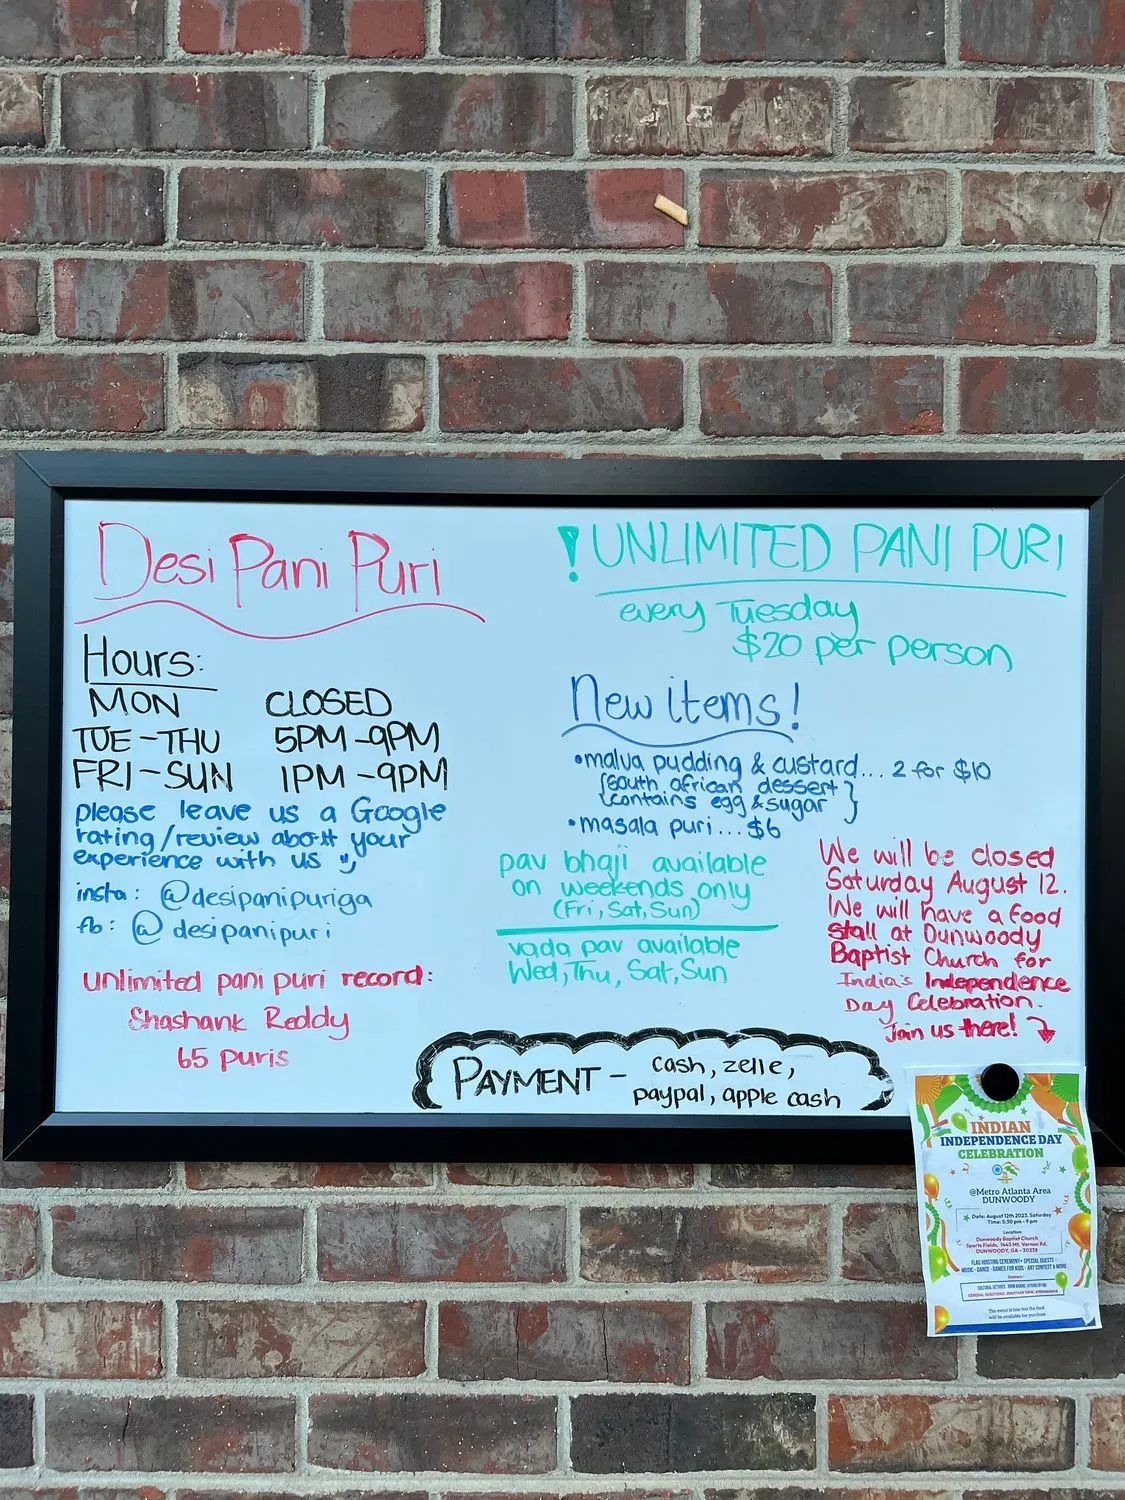 Desi Pani Puri
Hours:
MON CLOSED
TUE-THU 5PM-9PM
FRI-SUN 1PM-9PM
please leave us a Google
rating/review about your
experience with us
insta: @desipanipuriga
fb: @desipanipuri
unlimited pani puri record:
Shashank Reddy
65 puris
! UNLIMITED PANI PURI
every Tuesday
$20 per person
New items!
•malva pudding & custard... 2 for $10
{south african dessert}
{contains egg & sugar}
•masala puri... $6
pav bhaji available
on weekends only
(Fri, Sat, Sun)
vada pav available
Wed, Thu, Sat, Sun
We will be closed
Saturday August 12.
We will have a food
stall at Dunwoody
Baptist Church for
India's Independence
Day Celebration.
Join us there!
PAYMENT - cash, zelle,
paypal, apple cash
INDIAN
INDEPENDENCE DAY
CELEBRATION
@Metro Atlanta Area
DUNWOODY
Date: August 12th 2023, Saturday
Time: 5:30 pm - 9 pm
Location:
Dunwoody Baptist Church
Sports Fields, 1445 Mt. Vernon Rd,
DUNWOODY, GA - 30338
FLAG HOISTING CEREMONY • SPECIAL GUESTS -
MUSIC - DANCE - GAMES FOR KIDS - ART CONTEST & MORE
The event is free but the food
will be available for purchase